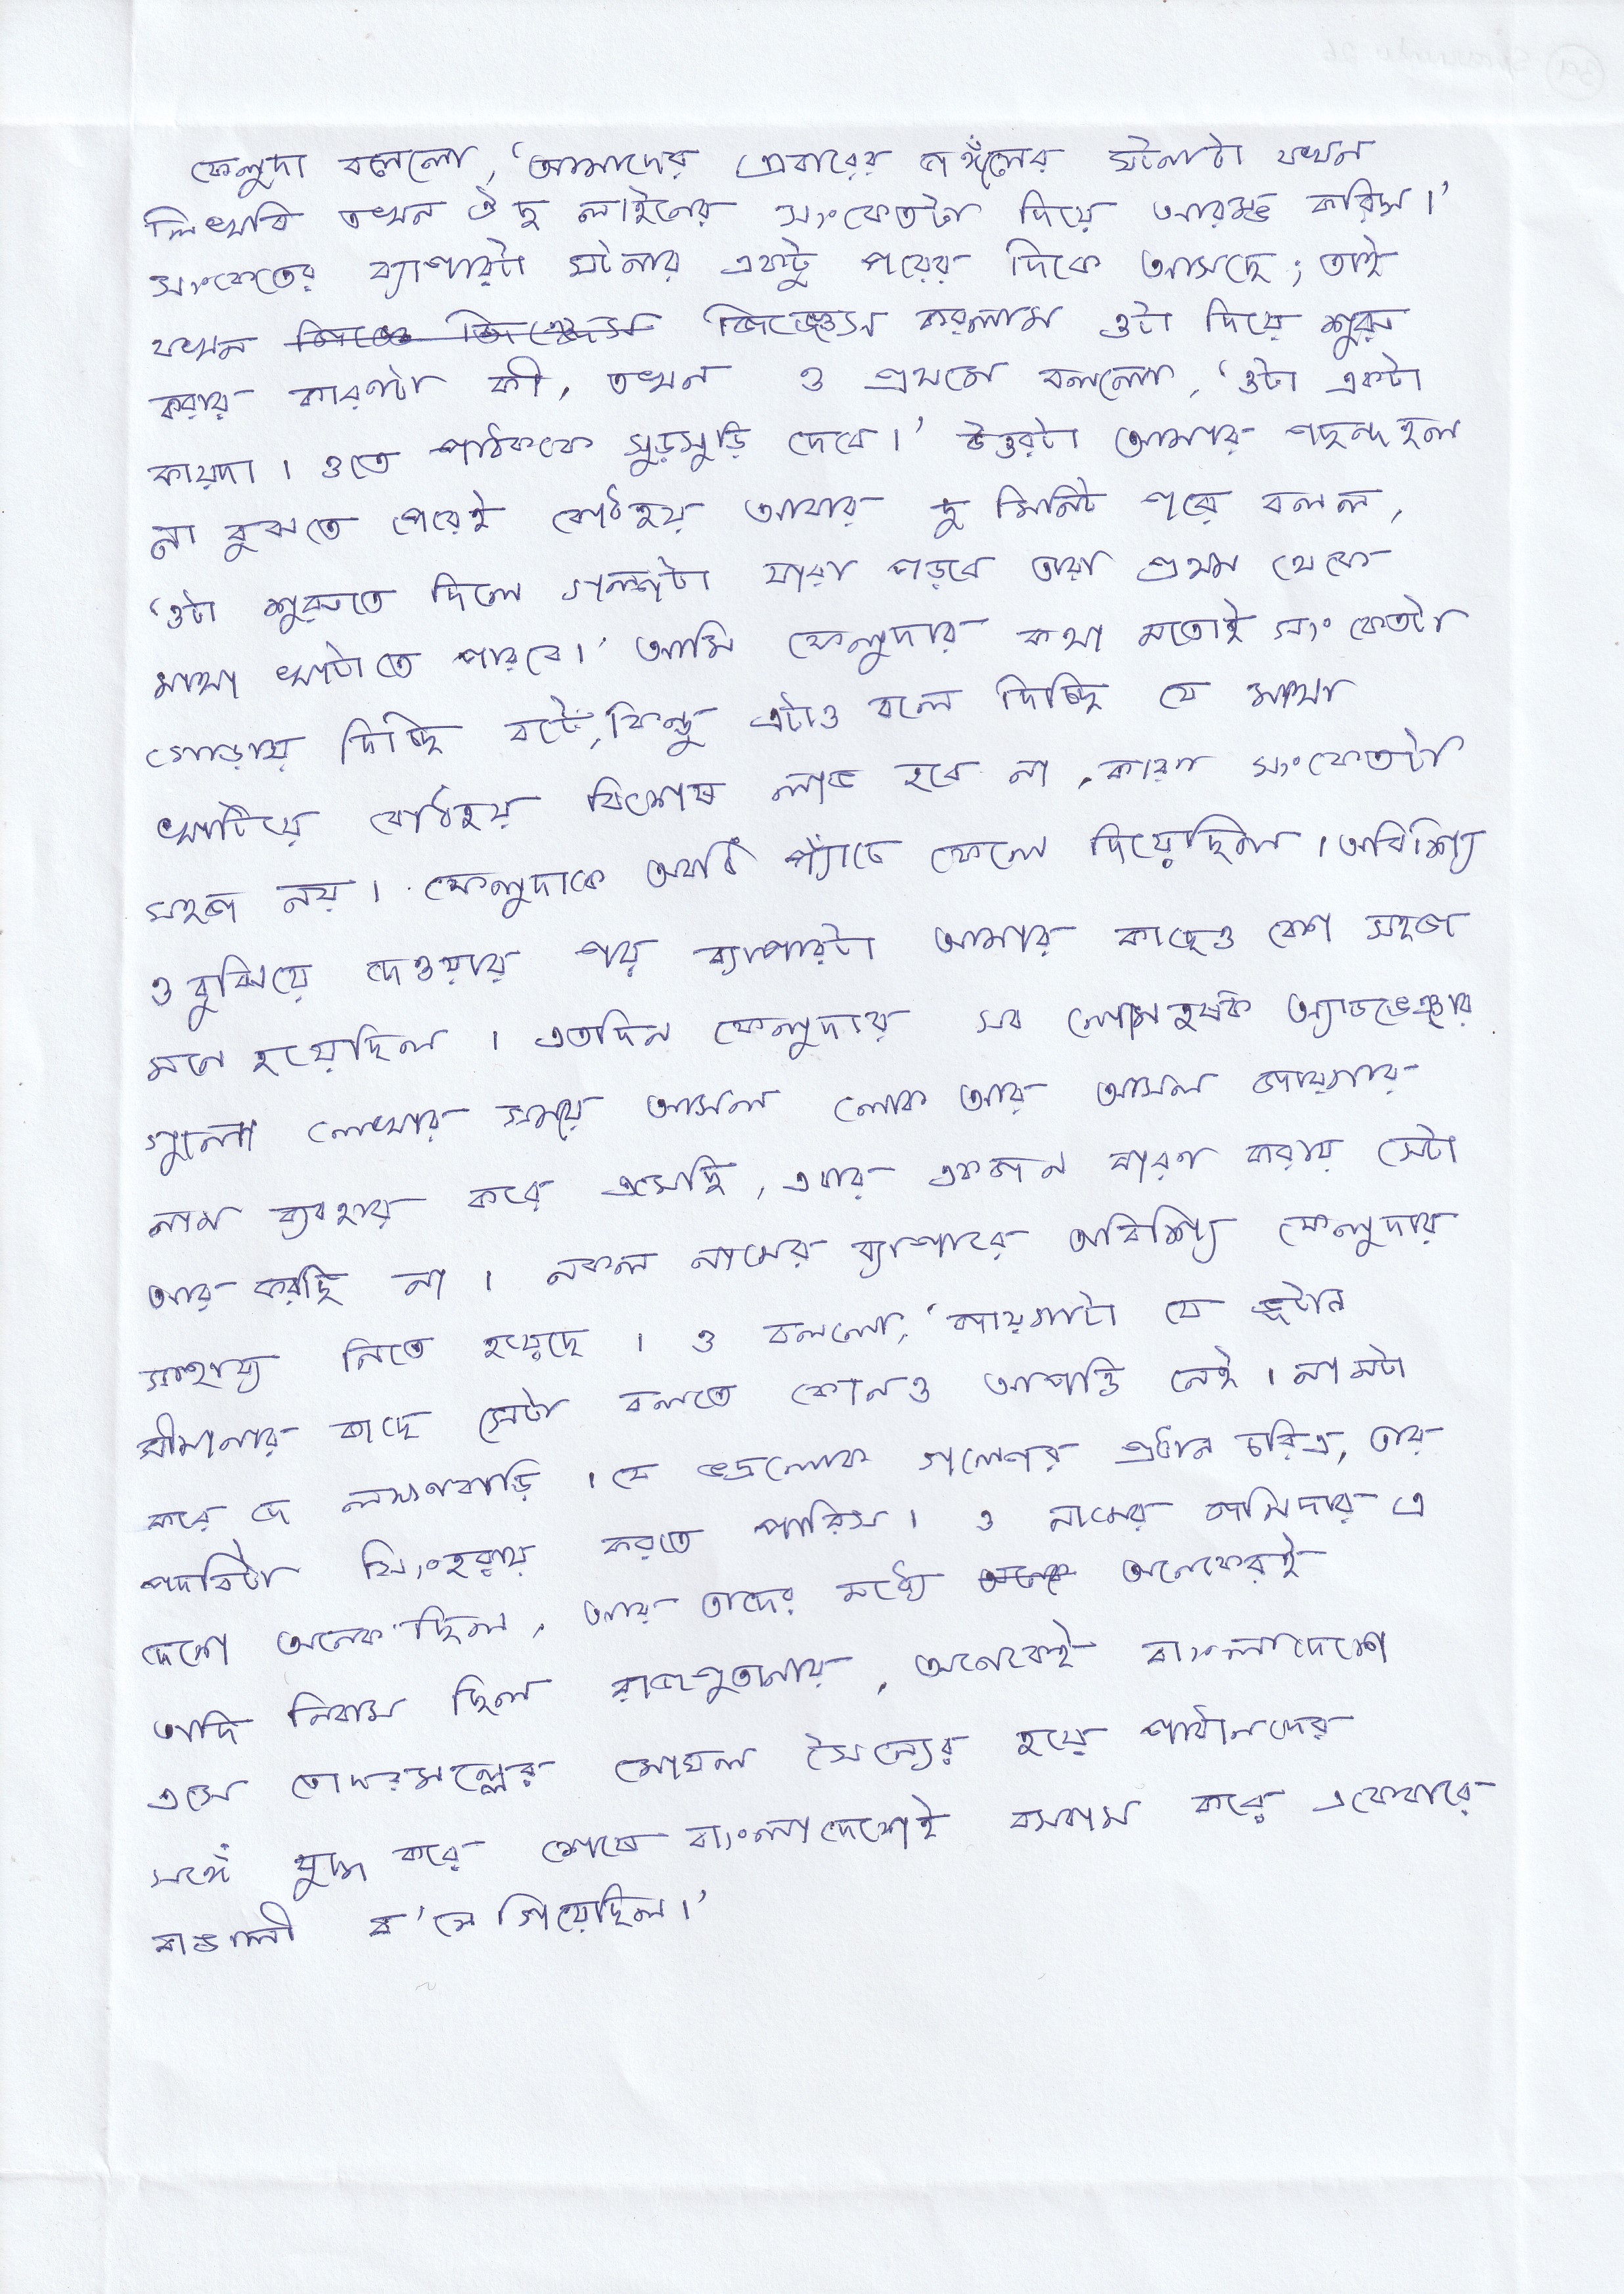 ফেলুদা বললো, 'আমাদের এবারের জঙ্গলের ঘটনাটা যখন
লিখবি তখন ঐ দু লাইনের সংকেতটা দিয়ে আরম্ভ করিস।'
সংকেতের ব্যাপারটা ঘটনার একটু পরের দিকে আসছে; তাই
যখন জিজ্ঞেস করলাম ওটা দিয়ে শুরু
করার কারণটা কী, তখন ও প্রথমে বললো, 'ওটা একটা
কায়দা। ওতে পাঠককে সুড়সুড়ি দেবে।' উত্তরটা আমার পছন্দ হল
না বুঝতে পেরেই বোধহয় আবার দু মিনিট পরে বলল,
'ওটা শুরুতে দিলে গল্পটা যারা পড়বে তারা প্রথম থেকে
মাথা খাটাতে পারবে।' আমি ফেলুদার কথা মতোই সংকেতটা
গোড়ায় দিচ্ছি বটে, কিন্তু এটাও বলে দিচ্ছি যে মাথা
খাটিয়ে বোধহয় বিশেষ লাভ হবে না, কারণ সংকেতটা
সহজ নয়। ফেলুদাকে অবধি প্যাঁচে ফেলে দিয়েছিল। অবিশ্যি
ও বুঝিয়ে দেওয়ার পর ব্যাপারটা আমার কাছেও বেশ সহজ
মনে হয়েছিল। এতদিন ফেলুদার সব লোমহর্ষক অ্যাডভেঞ্চার
গুলো লেখার সময়ে আসল লোক আর আসল জায়গার
নাম ব্যবহার করে এসেছি, এবার একজন বারণ করায় সেটা
আর করছি না। নকল নামের ব্যাপারে অবিশ্যি ফেলুদার
সাহায্য নিতে হয়েছে। ও বললো, 'জায়গাটা যে ভূটান
সীমানার কাছে সেটা বলতে কোনও আপত্তি নেই। নামটা
করে দে লক্ষ্মণবাড়ি। যে ভদ্রলোক গল্পের প্রধান চরিত্র, তার
পদবিটা সিংহরায় করতে পারিস। ও নামের জমিদার এ
দেশে অনেক ছিল, আর তাদের মধ্যে অনেকেরই
আদি নিবাস ছিল রাজপুতানায়, অনেকেই বাংলাদেশে
এসে তোদরমল্লের মোঘল সৈন্যের হয়ে পাঠানদের
সঙ্গে যুদ্ধ করে শেষে বাংলাদেশেই বসবাস করে একেবারে
বাঙালী ব'নে গিয়েছিল।'